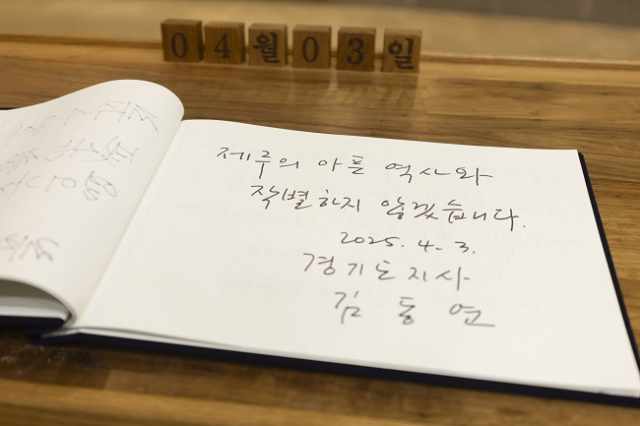 04월03일
제주의 아픈 역사와
작별하지 않겠습니다.
2025. 4. 3.
경기도지사
김동연